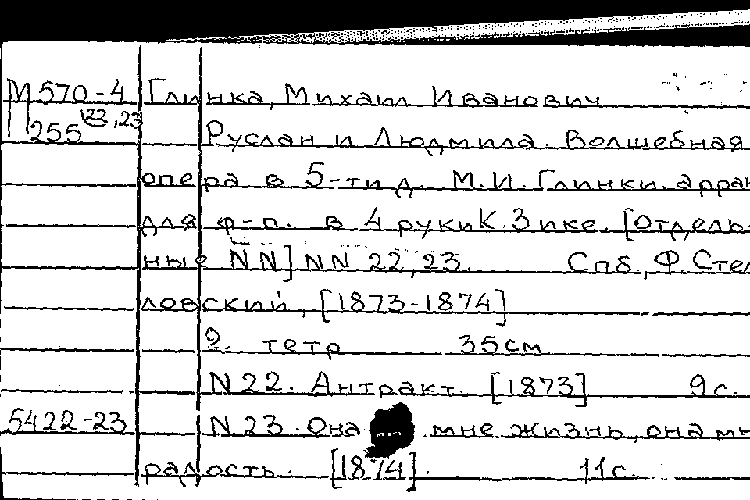 М 570-4 Глинка, Михаил Иванович
255 22,23 Руслан и Людмила. Волшебная
опера в 5-ти д. М.И. Глинки. арран
для ф-п. в 4 руки К. Зике. [Отдель-
ные NN] NN 22,23. Спб., Ф. Стел
ловский, [1873-1874]
2. тетр 35см
N 22. Антракт. [1873] 9 с.
5422-23 N 23. Она мне жизнь, она мн
радость. [1874]. 11 с.